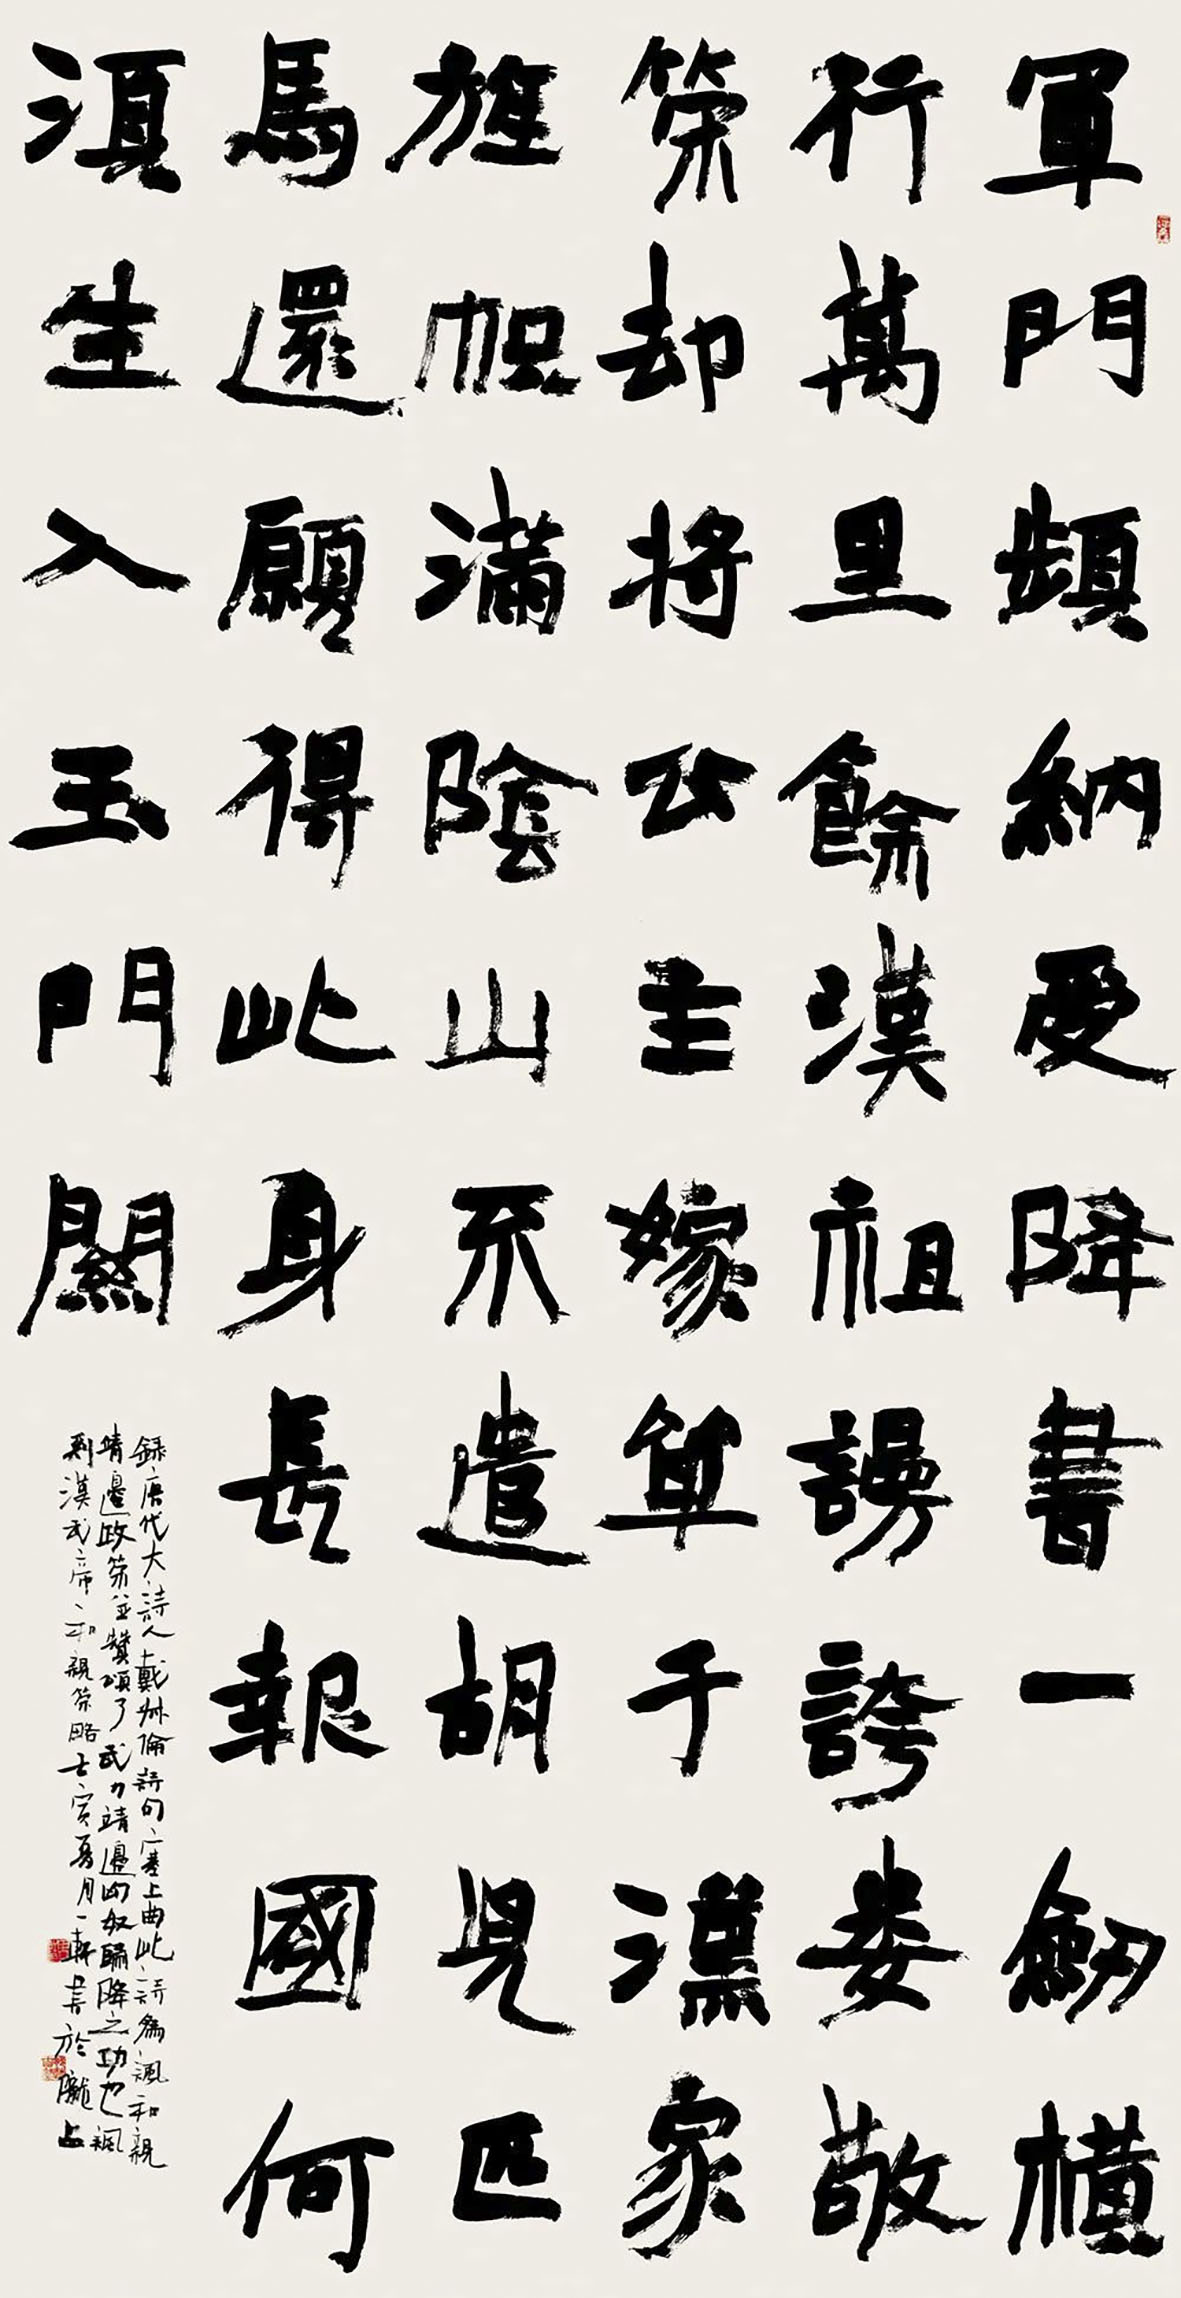 軍門頻納受降書一劍橫
行萬里餘漢祖謾誇娄敬
策却將公主嫁單于漢家
旌幟滿陰山不遣胡兒匹
馬還願得此身長報國何
須生入玉門關
録唐代大詩人戴叔倫詩句塞上曲此詩為諷和親
靖邊政策並贊頌了武力靖邊匈奴歸降之功也諷
刺漢武帝和親策略壬寅夏月一軒書於隴上